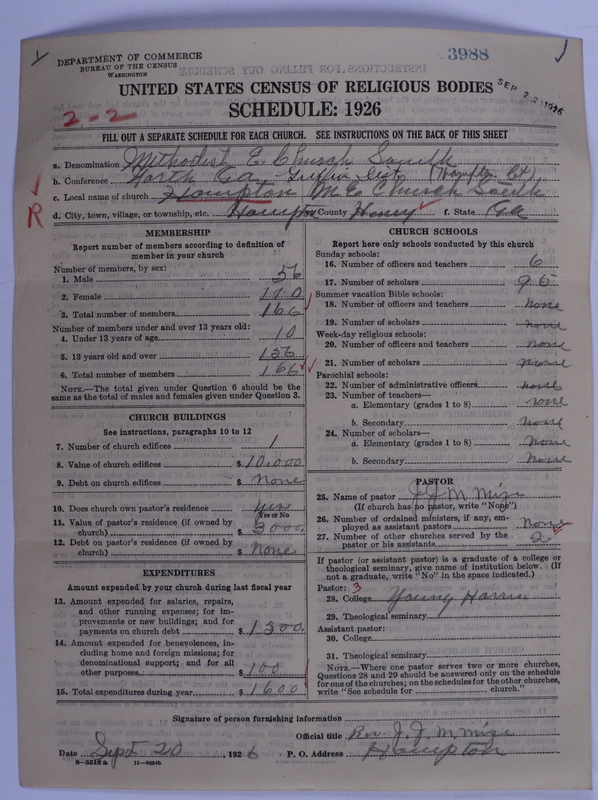 DEPARTMENT OF COMMERCE
BUREAU OF THE CENSUS
WASHINGTON
3988
UNITED STATES CENSUS OF RELIGIOUS BODIES
SEP 22 1926
SCHEDULE: 1926
2-2
FILL OUT A SEPARATE SCHEDULE FOR EACH CHURCH. SEE INSTRUCTIONS ON THE BACK OF THIS SHEET
a. Denomination Methodist E. Church South
b. Conference North Ga. Griffin Dist. (Hampton Ct)
c. Local name of church Hampton M. E. Church South
R
d. City, town, village, or township, etc. Hampton County Henry f. State Ga
MEMBERSHIP
Report number of members according to definition of member in your church
Number of members, by sex:
1. Male 56
2. Female 110
3. Total number of members 166
Number of members under and over 13 years old:
4. Under 13 years of age 10
5. 13 years old and over 156
6. Total number of members 166
NOTE.—The total given under Question 6 should be the same as the total of males and females given under Question 3.
CHURCH BUILDINGS
See instructions, paragraphs 10 to 12
7. Number of church edifices 1
8. Value of church edifices $ 10,000
9. Debt on church edifices $ None
10. Does church own pastor's residence yes
Yes or No
11. Value of pastor's residence (if owned by church) $ 3000.
12. Debt on pastor's residence (if owned by church) $ None
EXPENDITURES
Amount expended by your church during last fiscal year
13. Amount expended for salaries, repairs, and other running expenses; for improvements or new buildings; and for payments on church debt $ 1300.
14. Amount expended for benevolences, including home and foreign missions; for denominational support; and for all other purposes $ 100
15. Total expenditures during year $ 1600
CHURCH SCHOOLS
Report here only schools conducted by this church
Sunday schools:
16. Number of officers and teachers 6
17. Number of scholars 95
Summer vacation Bible schools:
18. Number of officers and teachers none
19. Number of scholars none
Week-day religious schools:
20. Number of officers and teachers none
21. Number of scholars none
Parochial schools:
22. Number of administrative officers none
23. Number of teachers—
a. Elementary (grades 1 to 8) none
b. Secondary None
24. Number of scholars—
a. Elementary (grades 1 to 8) None
b. Secondary None
PASTOR
25. Name of pastor J. J. M. Mize
(If church has no pastor, write "None")
26. Number of ordained ministers, if any, employed as assistant pastors None
27. Number of other churches served by the pastor or his assistants 2
If pastor (or assistant pastor) is a graduate of a college or theological seminary, give name of institution below. (If not a graduate, write "No" in the space indicated.)
Pastor: 3
28. College Young Harris
29. Theological seminary
Assistant pastor:
30. College
31. Theological seminary
NOTE.—Where one pastor serves two or more churches, Questions 28 and 29 should be answered only on the schedule for one of the churches; on the schedules for the other churches, write "See schedule for church."
Signature of person furnishing information
Official title Rev. J. J. M. Mize
Date Sept 20, 1926 P. O. Address Hampton
8—5518a 11—9054b